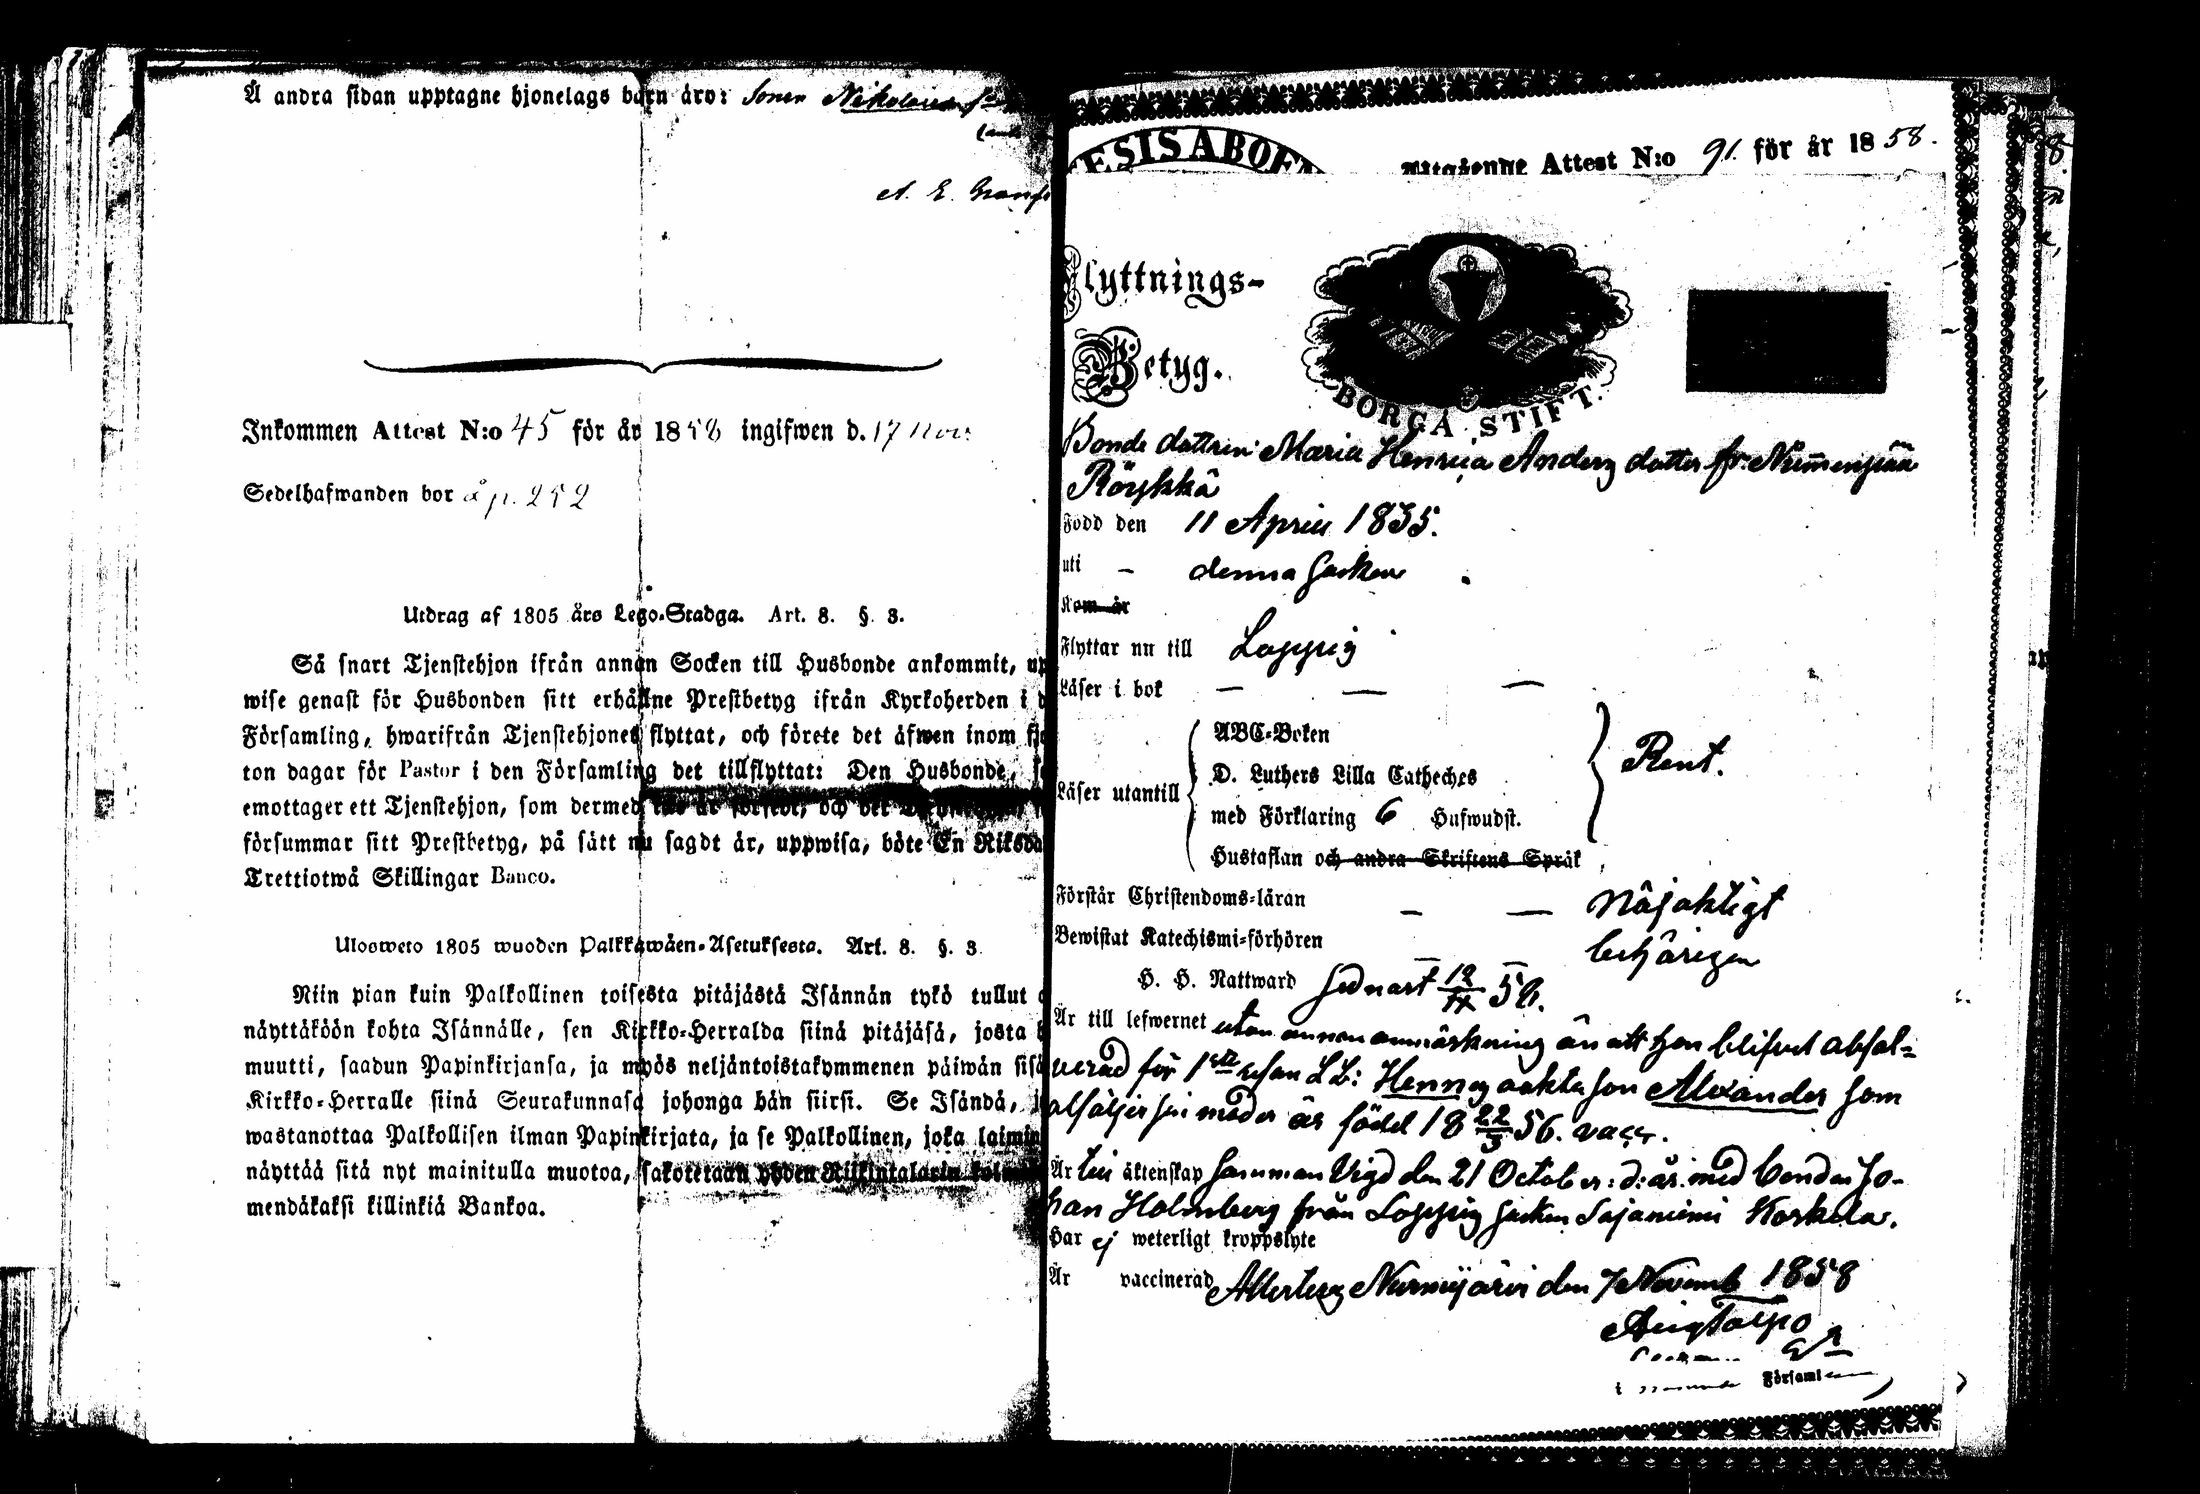 Å andra sidan upptagne hjonelags barn äro: Sonen Nikolaus
A. E. Granf
Inkommen Attest N:o 45 för år 1858 ingifwen d. 17 Nov:
Sedelhafwanden bor å p. 252
Utdrag af 1805 års Lego-Stadga. Art. 8. §. 3.
Så snart Tjenstehjon ifrån annan Socken till Husbonde ankommit, up
wise genast för Husbonden sitt erhållne Prestbetyg ifrån Kyrkoherden i d
Församling, hwarifrån Tjenstehjonet flyttat, och förete det äfwen inom fjo
ton dagar för Pastor i den Församling det tillflyttat: Den Husbonde, so
emottager ett Tjenstehjon, som dermed ej är försedt, och det
försummar sitt Prestbetyg, på sätt nu sagdt är, uppwisa, böte En Riksda
Trettiotwå Skillingar Banco.
Ulosweto 1805 wuoden Palkkawäen-Asetuksesta. Art. 8. §. 3.
Niin pian kuin Palkollinen toisesta pitäjästä Isännän tykö tullut o
näyttäköön kohta Isännälle, sen Kirkko-Herralda siinä pitäjäsä, josta h
muutti, saadun Papinkirjansa, ja myös neljäntoistakymmenen päiwän sisä
Kirkko-Herralle siinä Seurakunnasa johonga hän siirsi. Se Isändä, j
wastanottaa Palkollisen ilman Papinkirjata, ja se Palkollinen, joka laimin
näyttää sitä nyt mainitulla muotoa, sakotetaan yhden Riikintalarin kolme
mendäkaksi killinkiä Bankoa.
ESIS ABOEN
Utgående Attest N:o 91 för år 1858.
Flyttnings-
Betyg.
BORGÅ STIFT.
Bonde dottren Maria Henrica Anders dotter fr. Nummenpää
Röykkä
Född den 11 April 1835.
uti – denna Socken
Kom år
Flyttar nu till Loppis
Läser i bok — — —
ABC-Boken
D. Luthers Lilla Catheches
Läser utantill
Rent.
med Förklaring 6 Hufwudst.
Hustaflan och andra Skriftens Språk
Förstår Christendoms-läran — — Nöjaktigt
Bewistat Katechismi-förhören — — behörigen
H. H. Nattward sednast 12/IX 58.
Är till lefwernet utan annan anmärkning än att hon blifvit absol=
verad för 1sta resan LL: Hennes oäkta son Alexander som
åtföljer sin moder är född 18 22/3 56. vacc.
Är till äktenskap samman Vigd den 21 October d: år. med bonden Jo-
han Holmberg från Loppis socken Sajaniemi Koskela.
Har ej weterligt kroppslyte
Är vaccinerad Attesterar Nurmijärvi den 7 Novemb 1858
Aug Taipo
Församl